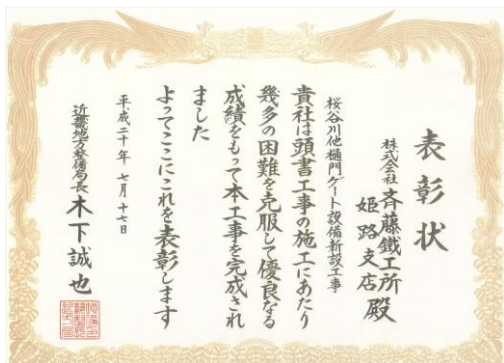 表彰状
株式会社 斉藤鐵工所
姫路支店 殿
桜谷川他樋門ゲート設備新設工事
貴社は頭書工事の施工にあたり
幾多の困難を克服して優良なる
成績をもって本工事を完成され
ました
よってここにこれを表彰します
平成二十年 七月十七日
近畿地方整備局長 木下誠也